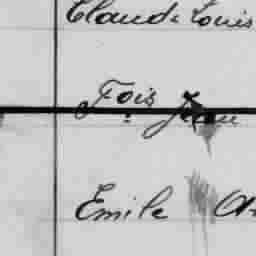 Claude Louis
Fois Jean
Emile